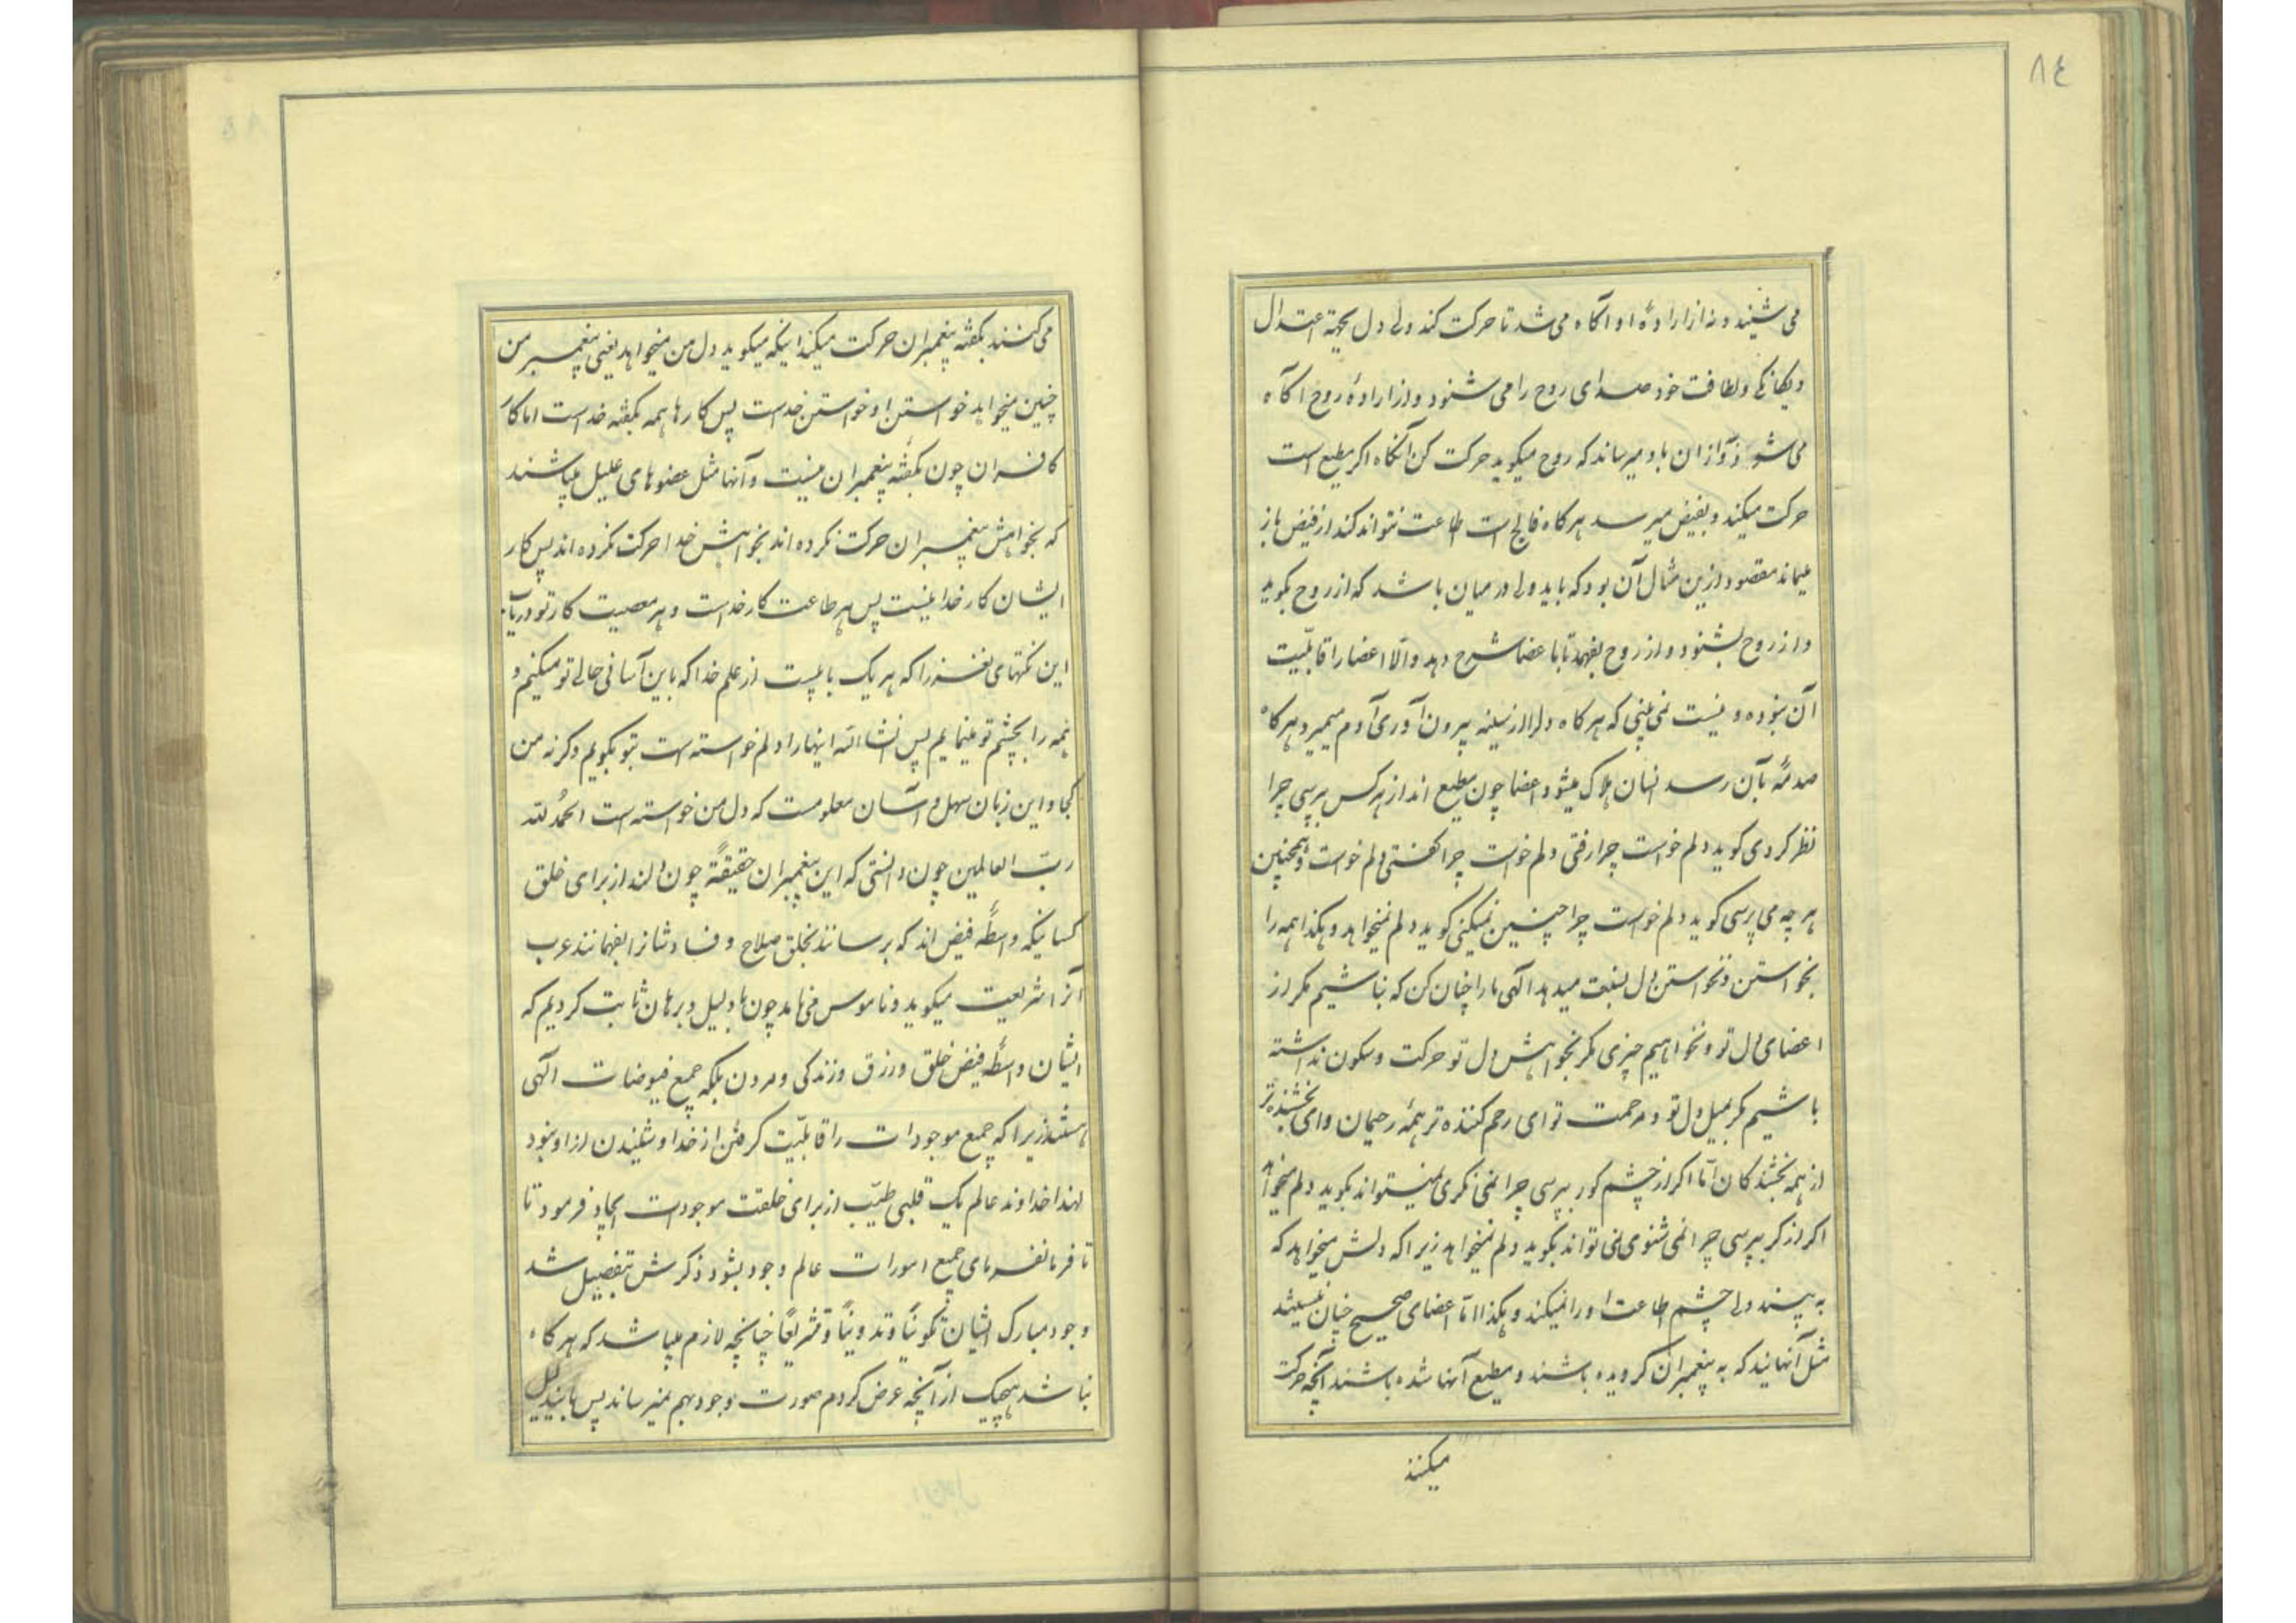 ٨٤
می شنید و نه از ارادهٔ او آگاه می شد تا حرکت کند ولی دل بجهة اعتدال
و یکانکی و لطافت خود صدای روح را می شنود و از ارادهٔ روح آگاه
می شود و از آن باو میرساند که روح میکوید حرکت کن آنگاه اکر مطیع است
حرکت میکند و بفیض میرسد هر کاه فالج است طاعت نتواند کند از فیض باز
میماند مقصود ازین مثال آن بود که باید دلی در میان باشد که از روح بکوید
و از روح بشنود و از روح بفهمد تا باعضا شرح دهد و الّا اعضا را قابلّیت
آن نبوده و نیست نمی بینی که هر کاه دل را از سینه بیرون آوری آدم میمیرد هر کاه
صدمهٔ بآن رسد انسان هلاک میشود اعضا چون مطیع اند از هر کس بپرسی چرا
نظر کردی کوید دلم خواست چرا رفتی دلم خواست چرا کفتی دلم خواست و همچنین
هر چه می پرسی کوید دلم خواست چرا چنین نمیکنی کوید دلم نمیخواهد و هکذا همه را
بخواستن و نخواستن دل نسبت میدهد الهی ما را چنان کن که نباشیم مکر از
اعضای دل تو و نخواهیم چیزی مکر بخواهش دل تو حرکت و سکون نداشته
باشیم مکر بمیل دل تو و مرحمت تو ای رحم کننده تر همهٔ رحیمان و ای بخشنده تر
از همه بخشندکان امّا اکر از چشم کور بپرسی چرا نمی نکری نمیتواند بکوید دلم میخواهد
اکر از کر بپرسی چرا نمی شنوی نمی تواند بکوید دلم نمیخواهد زیرا که دلش میخواهد که
به بیند ولی چشم طاعت او را نمیکند و هکذا امّا اعضای صحیح چنان نیستند
مثل آنهایند که به پیغمبران کرویده باشند و مطیع آنها شده باشند آنچه حرکت
میکنند
می کنند بکفته پیغمبران حرکت میکنند اینکه میکوید دل من میخواهد یعنی پیغمبر من
چنین میخواهد خواستن او خواستن خداست پس کارها همه بکفته خداست اما کار
کافران چون بکفته پیغمبران نیست و آنها مثل عضوهای علیل میباشند
که بخواهش پیغمبران حرکت نکرده اند بخواهش خدا حرکت نکرده اند پس کار
ایشان کار خدا نیست پس هر طاعت کار خداست و هر معصیت کار تو دریاب
این نکتهای نغز را که هر یک بابیست از علم خدا که باین آسانی حالی تو میکنیم و
همه را بچشم تو مینمایم پس انشاء الله اینها را دلم خواسته است بتو بکویم و کرنه من
کجا و این زبان سهل و آسان معلومست که دل من خواسته است الحمدُ لله
ربّ العالمین چون دانستی که این پیغمبران حقیقةً چون دلند از برای خلق
کسانیکه واسطهٔ فیض اند که برسانند بخلق صلاح و فسادشانرا بفهمانند عرب
آنرا شریعت میکوید و ناموس می نامد چون ما بدلیل و برهان ثابت کردیم که
ایشان واسطهٔ فیض خلق و رزق و زندکی و مردن بلکه جمیع فیوضات الهی
هستند زیرا که جمیع موجودات را قابلّیت کرفتن از خدا و شنیدن از او نبود
لهذا خداوند عالم یک قلبی طیّب از برای خلقت موجودات ایجاد فرمود تا
تا فرمانفرمای جمیع امورات عالم وجود بشود ذکرش بتفصیل شد
وجود مبارک ایشان تکویناً و تدویناً و تشریعاً چنانچه لازم میباشد که هر کاه
نباشد هیچیک از آنچه عرض کردم صورت وجود بهم نمیرساند پس